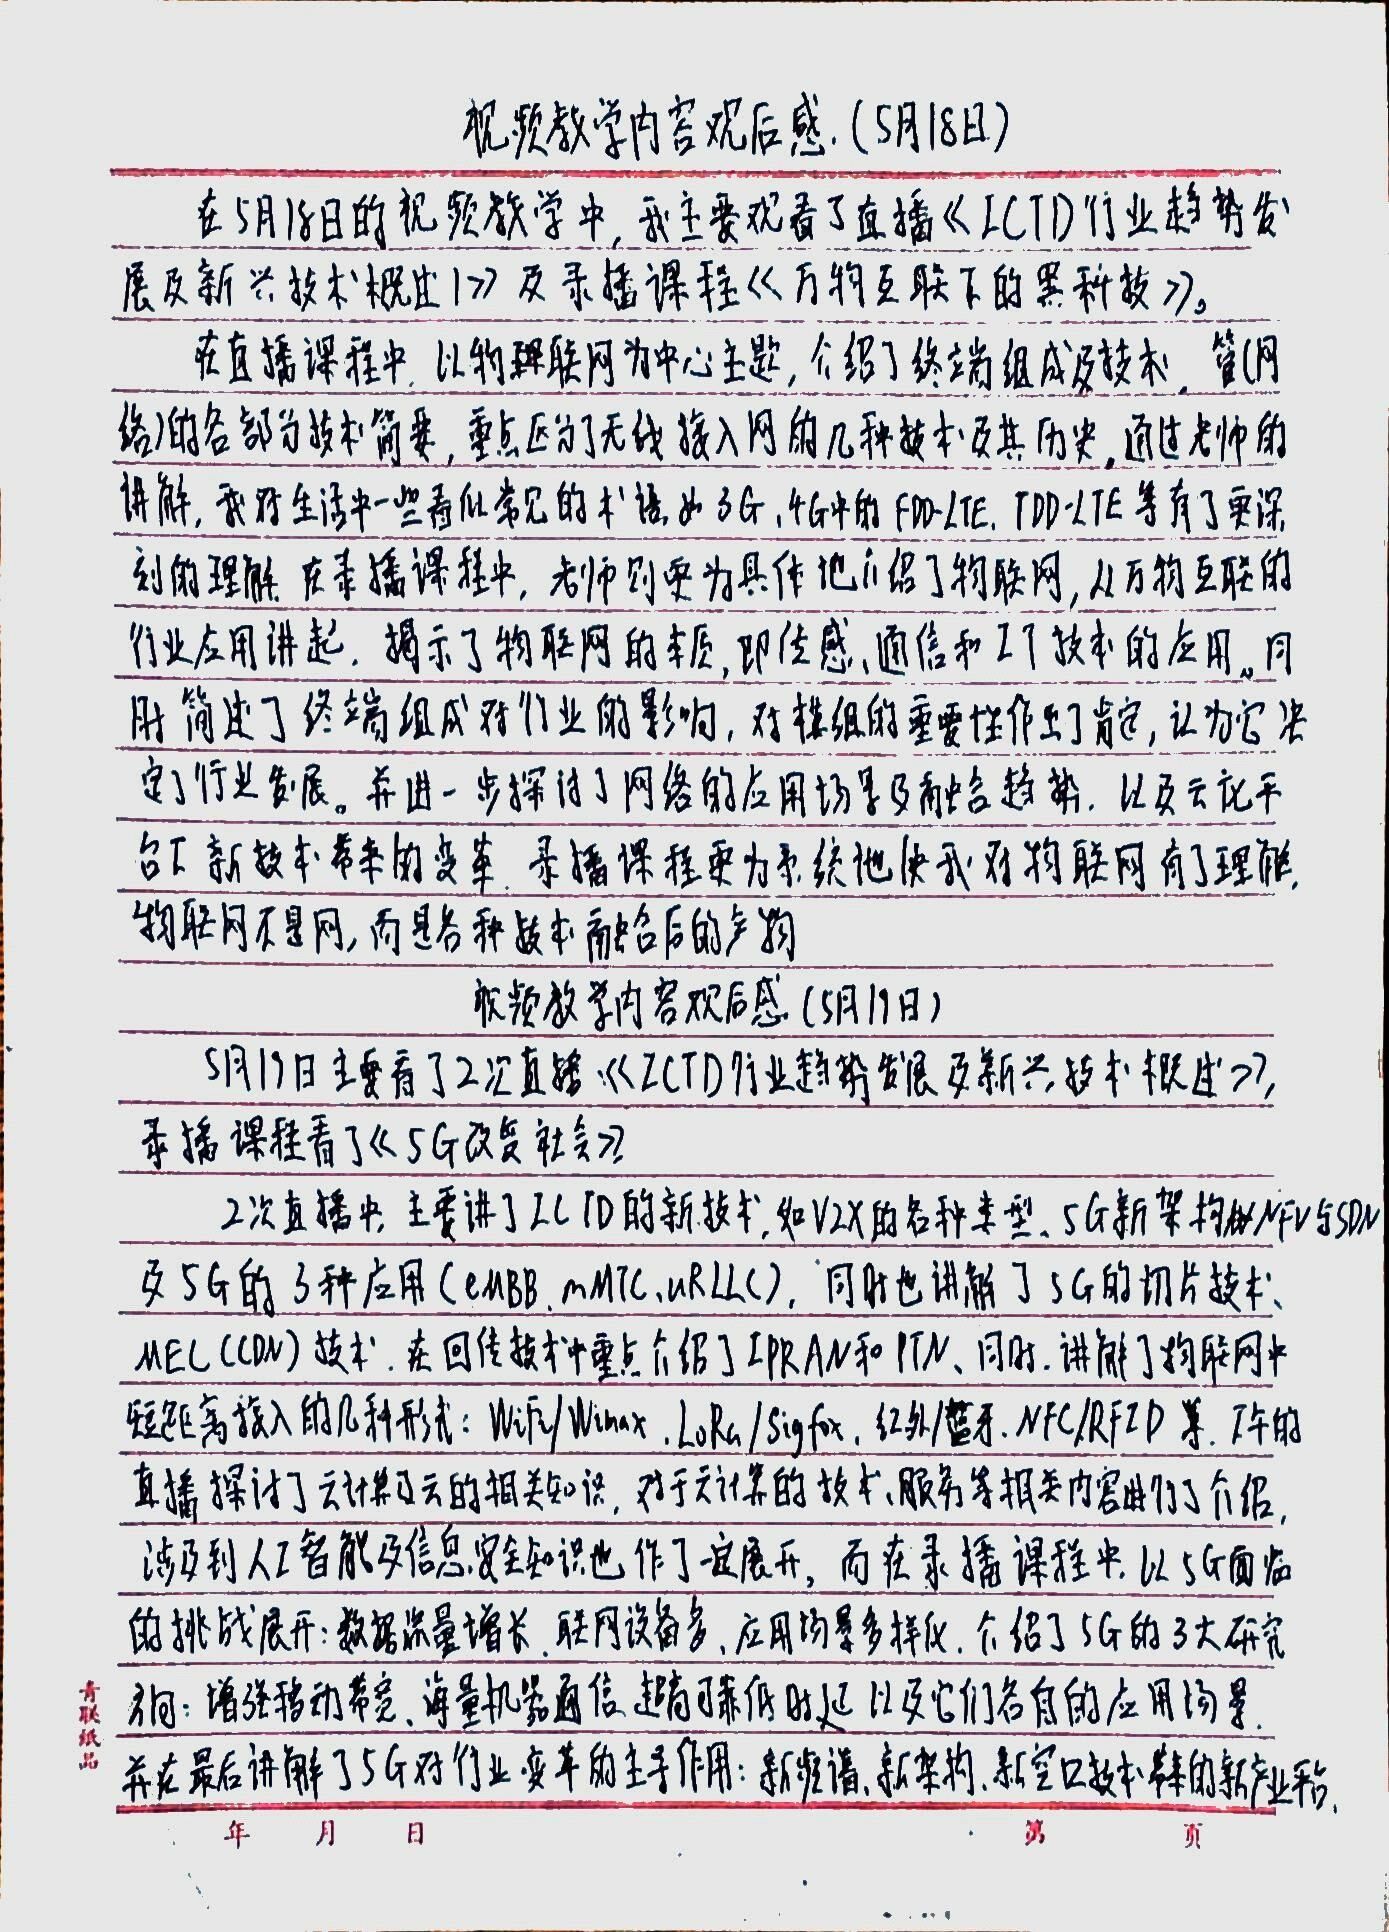 视频教学内容观后感.(5月18日)
在5月18日的视频教学中,我主要观看了直播《ICTD行业趋势发
展及新兴技术概述1》及录播课程《万物互联下的黑科技》。
在直播课程中,以物理联网为中心主题,介绍了终端组成及技术,管(网
络)的各部分技术简要,重点区分了无线接入网的几种技术及其历史,通过老师的
讲解,我对生活中一些看似常见的术语,如3G、4G中的FDD-LTE、TDD-LTE等有了更深
刻的理解.在录播课程中,老师则更为具体地介绍了物联网,从万物互联的
行业应用讲起,揭示了物联网的本质,即传感、通信和IT技术的应用。同
时简述了终端组成对行业的影响,对模组的重要性作出了肯定,认为它决
定了行业发展。并进一步探讨了网络的应用场景及融合趋势,以及云化平
台下新技术带来的变革.录播课程更为系统地使我对物联网有了理解,
物联网不是网,而是各种技术融合后的产物
视频教学内容观后感(5月19日)
5月19日主要看了2次直播:《ICTD行业趋势发展及新兴技术概述》,
录播课程看了《5G改变社会》
2次直播中,主要讲了ICTD的新技术,如V2X的各种类型、5G新架构NFV与SDN
及5G的3种应用(eMBB、mMTC、uRLLC),同时也讲解了5G的切片技术、
MEC(CDN)技术.在回传技术中重点介绍了IPRAN和PTN、同时.讲解了物联网中
短距离接入的几种形式:WiFi/Wimax、LoRa/Sigfox、红外/蓝牙、NFC/RFID等.下午的
直播探讨了云计算及云的相关知识,对于云计算的技术、服务等相关内容进行了介绍,
涉及到人工智能及信息安全知识也作了一定展开,而在录播课程中,以5G面临
的挑战展开:数据流量增长、联网设备多、应用场景多样化.介绍了5G的3大研究
方向:增强移动带宽、海量机器通信、超高可靠低时延以及它们各自的应用场景.
并在最后讲解了5G对行业变革的主导作用:新频谱、新架构、新空口技术带来的新产业平台.
青联纸品
年 月 日 第 页